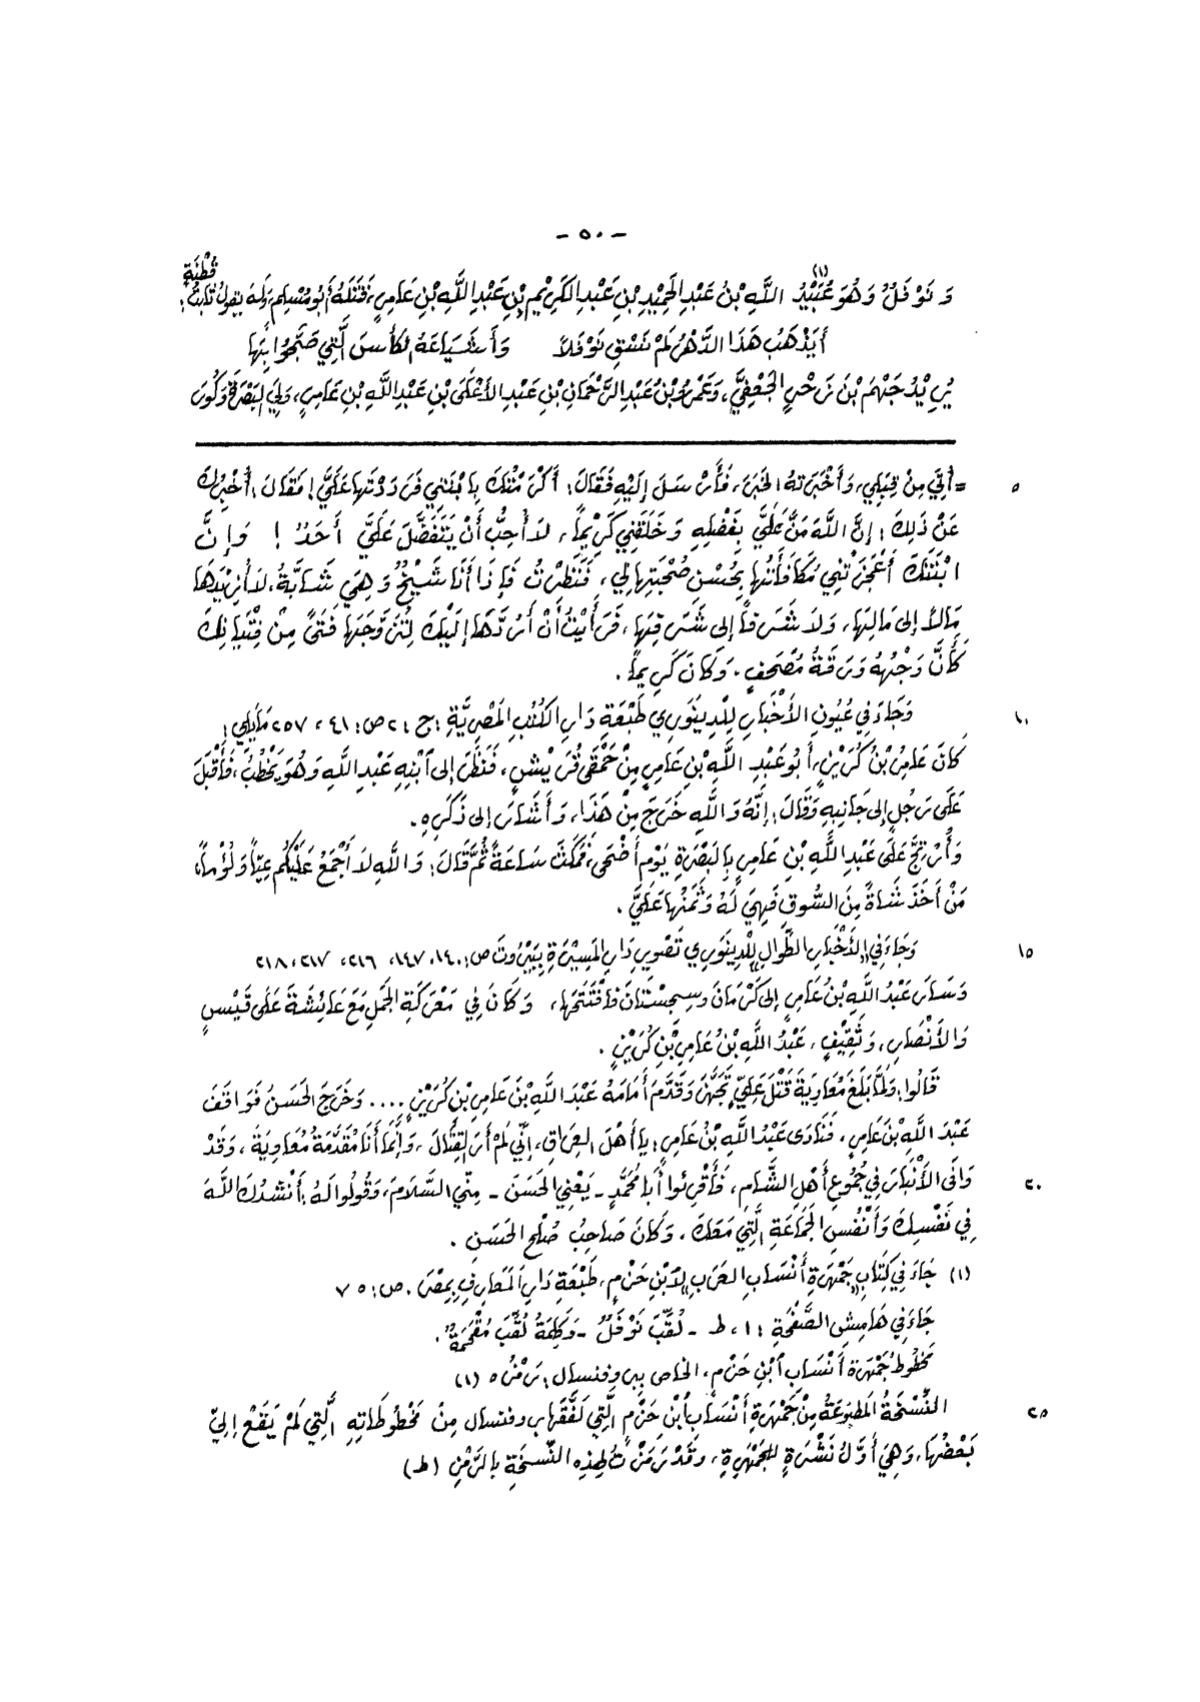 - ٥٠ -
وَنَوْفَلُ وَهُوَ عُبَيْدُ (١) اللَّهِ بْنُ عَبْدِ الْحَمِيْدِ بْنِ عَبْدِ الكَرِيْمِ بْنِ عَبْدِ اللَّهِ بْنِ عَامِرٍ، قَتَلَهُ أَبُو مُسْلِمٍ وَلَهُ يَقُولُ ثَابِتُ قُطْنَةَ:
أَيَذْهَبُ هَذَا الدَّهْرُ لَمْ نَسْقِ نَوْفَلاً وَأَشْيَاعَهُ الكَأْسَ الَّتِي صَبَّحُوا بِهَا
يُرِيْدُ جَهْمَ بْنَ زَحْرٍ الجُعْفِيَّ، وَعَمْرُو بْنُ عَبْدِ الرَّحْمَانِ بْنِ عَبْدِ الأَعْلَى بْنِ عَبْدِ اللَّهِ بْنِ عَامِرٍ، وَلِيَ البَصْرَةَ وَكُوَرَ
٥ = أُتِيَ مِنْ قِبَلِي، وَأَخْبَرَتهُ الخَبَرَ، فَأَرْسَلَ إِلَيْهِ فَقَالَ: أَكْرَمْتُكَ بِابْنَتِي فَرَدَدْتَهَا عَلَيَّ! فَقَالَ: أُخْبِرُكَ
عَنْ ذَلِكَ: إِنَّ اللَّهَ مَنَّ عَلَيَّ بِفَضْلِهِ وَخَلَقَنِي كَرِيْماً، لاَ أُحِبُّ أَنْ يَتَفَضَّلَ عَلَيَّ أَحَدٌ! وَإِنَّ
ابْنَتَكَ أَعْجَزَتْنِي مُكَافَأَتُهَا بِحُسْنِ صُحْبَتِهَا لِي، فَنَظَرْتُ فَإِذَا أَنَا شَيْخٌ وَهِيَ شَابَّةٌ، لاَ أَزِيْدُهَا
مَالاً إلى مَالِهَا، وَلاَ شَرَفاً إلى شَرَفِهَا، فَرَأَيْتُ أَنْ أَرُدَّهَا إِلَيْكَ لِتُزَوِّجَهَا فَتًى مِنْ فِتْيَانِكَ
كَأَنَّ وَجْهَهُ وَرَقَةُ مُصْحَفٍ. وَكَانَ كَرِيماً.
١٠ وَجَاءَ فِي عُيُونِ الأَخْبَارِ لِلدِّينَوَرِي طَبْعَةِ دَارِ الكُتُبِ المَصْرِيَّةِ: ج: ٢ ص: ٤١، ٢٥٧ مَايلي:
كَانَ عَامِرُ بْنُ كُرَيْزٍ، أَبُو عَبْدِ اللَّهِ بْنِ عَامِرٍ مِنْ حَمْقَى قُرَيْشٍ، فَنَظَرَ إلى ٱبْنِهِ عَبْدِ اللَّهِ وَهُوَ يَخْطُبُ، فَأَقْبَلَ
عَلَى رَجُلٍ إلى جَانِبِهِ وَقَالَ: إِنَّهُ وَاللَّهِ خَرَجَ مِنْ هَذَا، وَأَشَارَ إلى ذَكَرِهِ.
وَأُرْتِجَ عَلَى عَبْدِ اللَّهِ بْنِ عَامِرٍ بِالبَصْرَةِ يَوْمَ أَضْحَى، فَمَكَثَ سَاعَةً ثُمَّ قَالَ: وَاللَّهِ لاَ أَجْمَعُ عَلَيْكُم عِيّاً وَلُؤْماً،
مَنْ أَخَذَ شَاةً مِنَ السُّوقِ فَهِيَ لَهُ وَثَمَنُهَا عَلَيَّ.
١٥ وَجَاءَ فِي «الأَخْبَارِ الطِّوَالِ» لِلدِّينَوَرِي تَصْوِيرِ دَارِ المَسِيْرَةِ بِبَيْرُوتَ ص: ١٤٠، ١٤٧، ٢١٦، ٢١٧، ٢١٨
وَسَارَ عَبْدُ اللَّهِ بْنُ عَامِرٍ إلى كَرْمَانَ وَسِجِسْتَانَ فَافْتَتَحَهَا، وَكَانَ فِي مَعْرَكَةِ الجَمَلِ مَعَ عَائِشَةَ عَلَى قَيْسٍ
وَالأَنْصَارِ، وَثَقِيْفٍ، عَبْدُ اللَّهِ بْنُ عَامِرِ بْنِ كُرَيْزٍ.
قَالُوا: وَلَمَّا بَلَغَ مُعَاوِيَةَ قَتْلَ عَلِيٍّ تَجَهَّزَ وَقَدَّمَ أَمَامَهُ عَبْدَ اللَّهِ بْنَ عَامِرِ بْنِ كُرَيْزٍ .... وَخَرَجَ الحَسَنُ فَوَاقَفَ
عَبْدَ اللَّهِ بْنَ عَامِرٍ، فَنَادَى عَبْدُ اللَّهِ بْنُ عَامِرٍ: يَا أَهْلَ العِرَاقِ، إِنِّي لَمْ أَرَ القِتَالَ، وَإِنَّمَا أَنَا مُقَدِّمَةُ مُعَاوِيَةَ، وَقَدْ
٢٠ وَافَى الأَنْبَارَ فِي جُمُوعِ أَهْلِ الشَّامِ، فَأَقْرِئُوا أَبَا مُحَمَّدٍ - يَعْنِي الحَسَنَ - مِنِّي السَّلاَمَ، وَقُولُوا لَهُ: أَنْشُدُكَ اللَّهَ
فِي نَفْسِكَ وَأَنْفُسِ الجَمَاعَةِ الَّتِي مَعَكَ، وَكَانَ صَاحِبُ صُلْحِ الحَسَنِ.
(١) جَاءَ فِي كِتَابِ «جَمْهَرَةِ أَنْسَابِ العَرَبِ» لِابْنِ حَزْمٍ، طَبْعَةِ دَارِ المَعَارِفِ بِمِصْرَ. ص: ٧٥
جَاءَ فِي هَامِشِ الصَّفْحَةِ: ١، ط - لُقِّبَ نَوْفَلٌ - وَكَلِمَةُ لُقِّبَ مُقْحَمَةٌ.
مَخْطُوطُ جَمْهَرَةِ أَنْسَابِ ٱبْنِ حَزْمٍ، الخاص ببروفنسال: رَمْزُهُ (١)
٢٥ النُّسْخَةُ المَطْبُوعَةُ مِنْ جَمْهَرَةِ أَنْسَابِ ٱبْنِ حَزْمٍ الَّتِي لَفَّقَهَا بروفنسال مِنْ مَخْطُوطَاتِهِ الَّتِي لَمْ يَقَعْ إليَّ
بَعْضُهَا، وَهِيَ أَوَّلُ نَشْرَةٍ للجَمْهَرَةِ، وَقَدْ رَمَزْتُ لِهَذِهِ النُّسْخَةِ بِالرَّمْزِ (ط)